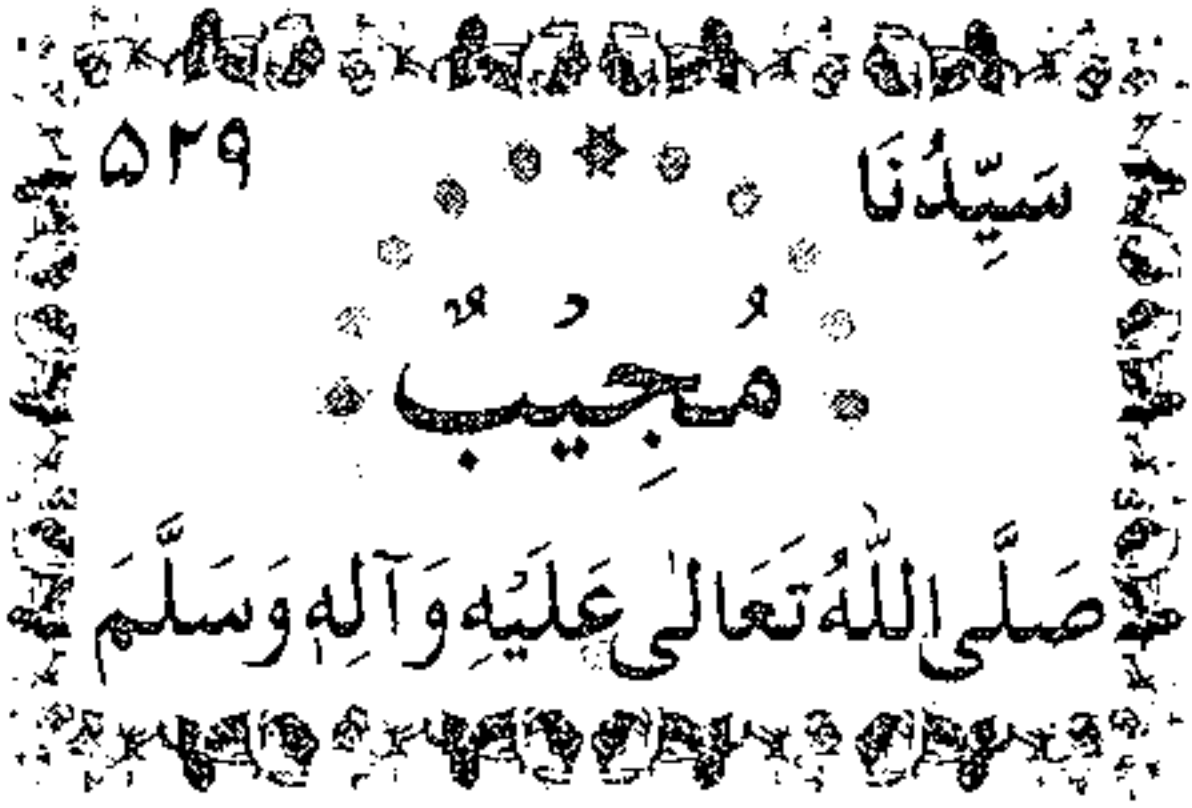 سَيِّدُنَا ۵۲۹
مُجِيْبٌ
صَلَّى اللّٰهُ تَعَالٰى عَلَيْهِ وَآلِهٖ وَسَلَّمَ